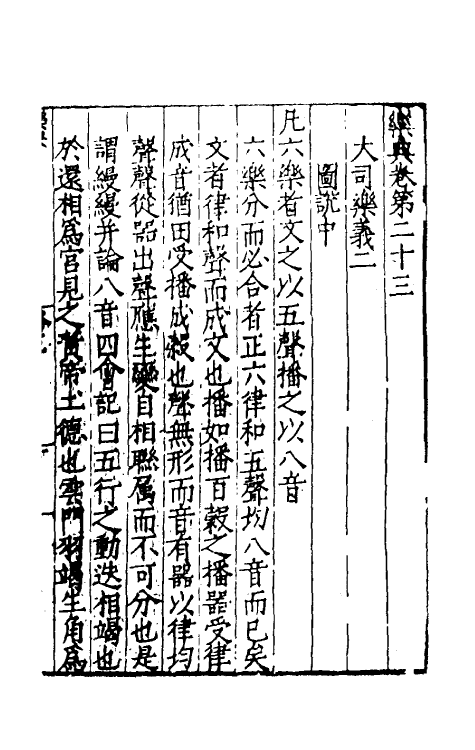 樂典卷第二十三
大司樂義二
圖說中
凡六樂者文之以五聲播之以八音
六樂分而必合者正六律和五聲均八音而已矣
文者律和聲而成文也播如播百穀之播器受律
成音猶田受播成穀也聲無形而音有器以律均
聲聲從器出聲應生變自相聯属而不可分也是
謂縵縵并論八音四會記曰五行之動迭相竭也
於還相爲宮見之黄帝土德也雲門羽竭生角爲